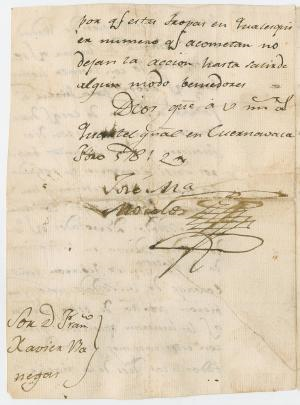 por qẽ estas tropas en qualesqui
en numero qẽ acometan no
dejan la accion hasta salir de
algun modo bensedores
Dios que a v m.s a.s
Quartel gñal en Cuernavaca
1812
Jose Ma
Morelos
Sor. D. Fran.co
Xavier Va
negas